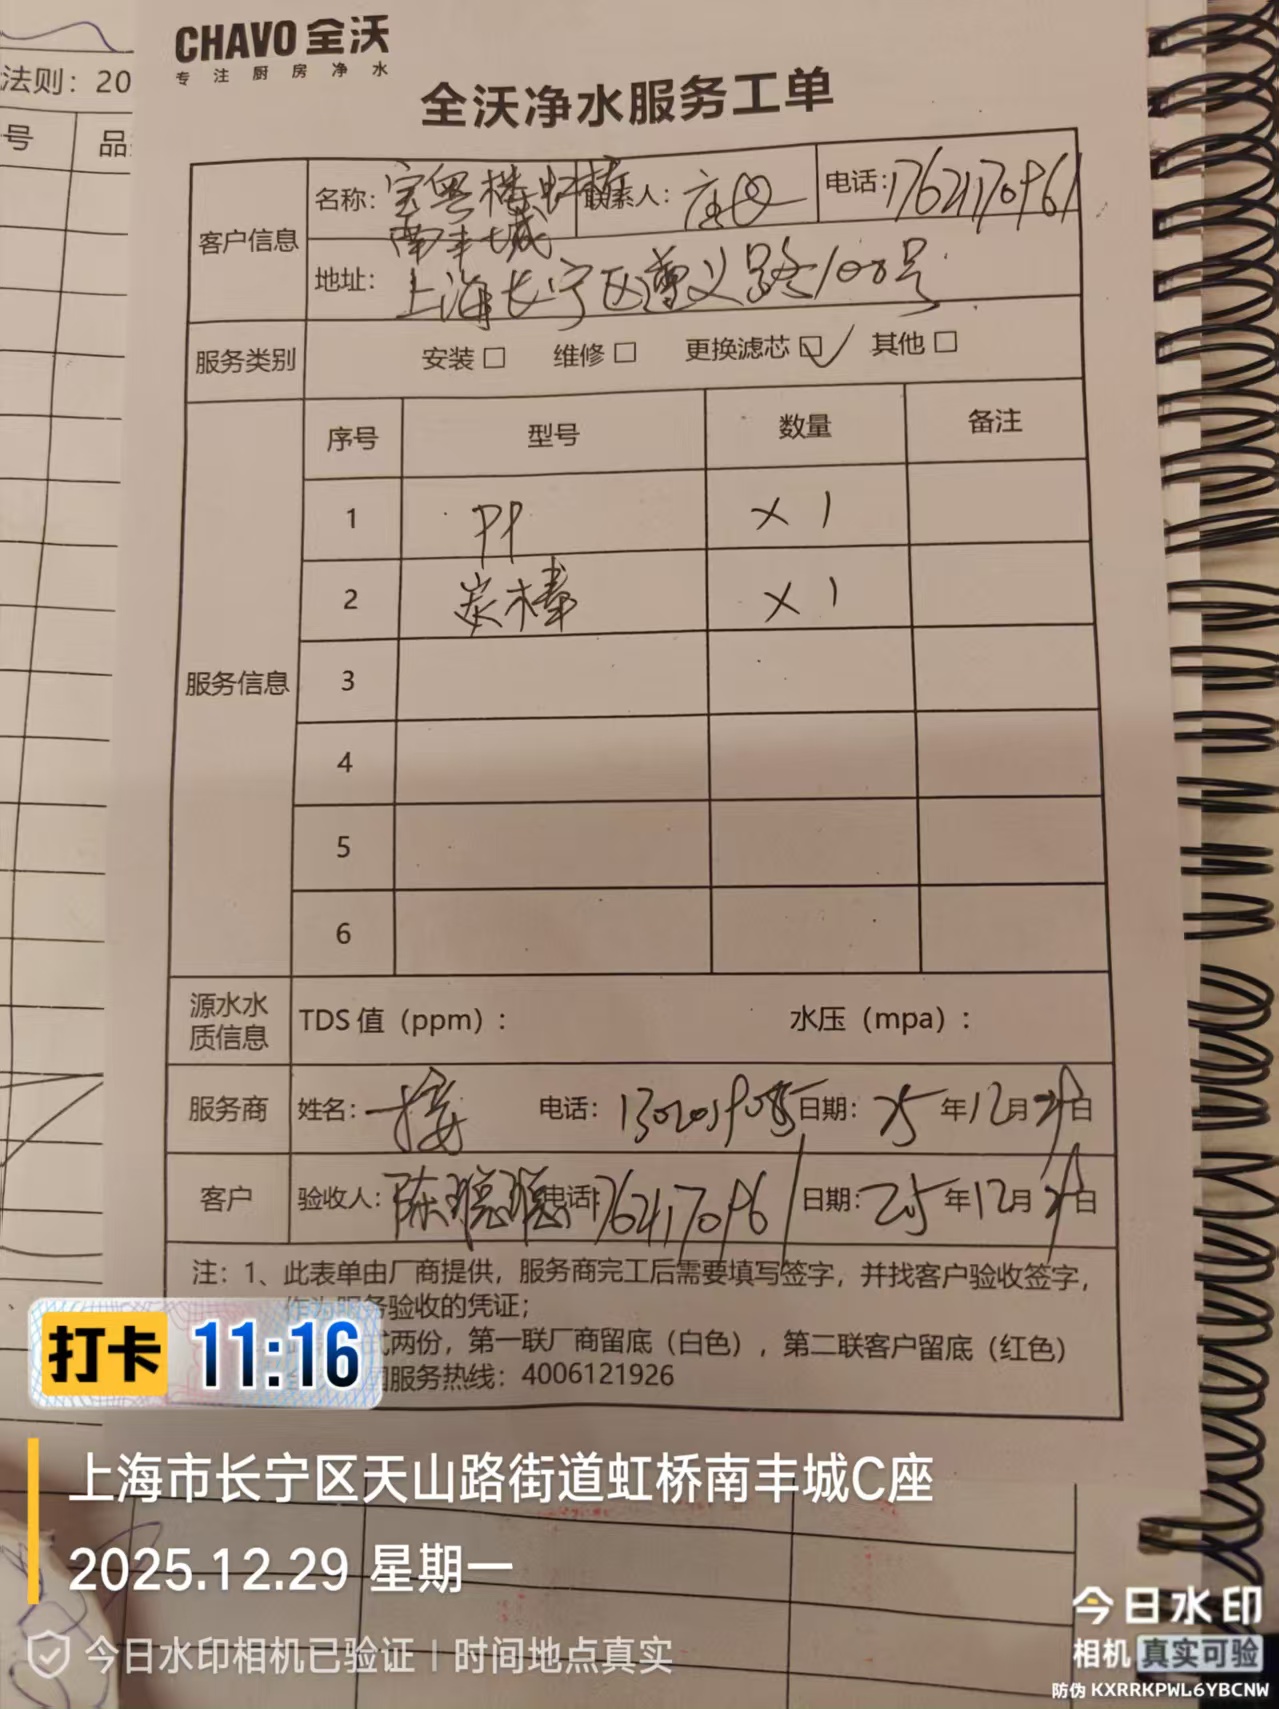 法则：20
号 品
CHAVO 全沃
专注厨房净水
全沃净水服务工单
客户信息
名称：宝粤楼虹桥南丰城 联系人： 电话：17621170961
地址：上海长宁区遵义路100号
服务类别 安装□ 维修□ 更换滤芯☑ 其他□
服务信息
序号 型号 数量 备注
1 PP ×1
2 炭棒 ×1
3
4
5
6
源水水质信息 TDS 值（ppm）： 水压（mpa）：
服务商 姓名： 电话： 日期：25年12月29日
客户 验收人：陈 电话：17621170961 日期：25年12月29日
注：1、此表单由厂商提供，服务商完工后需要填写签字，并找客户验收签字，
作为服务验收的凭证；
式两份，第一联厂商留底（白色），第二联客户留底（红色）
国服务热线：4006121926
打卡 11:16
上海市长宁区天山路街道虹桥南丰城C座
2025.12.29 星期一
今日水印相机已验证 | 时间地点真实
今日水印
相机 真实可验
防伪 KXRRKPWL6YBCNW